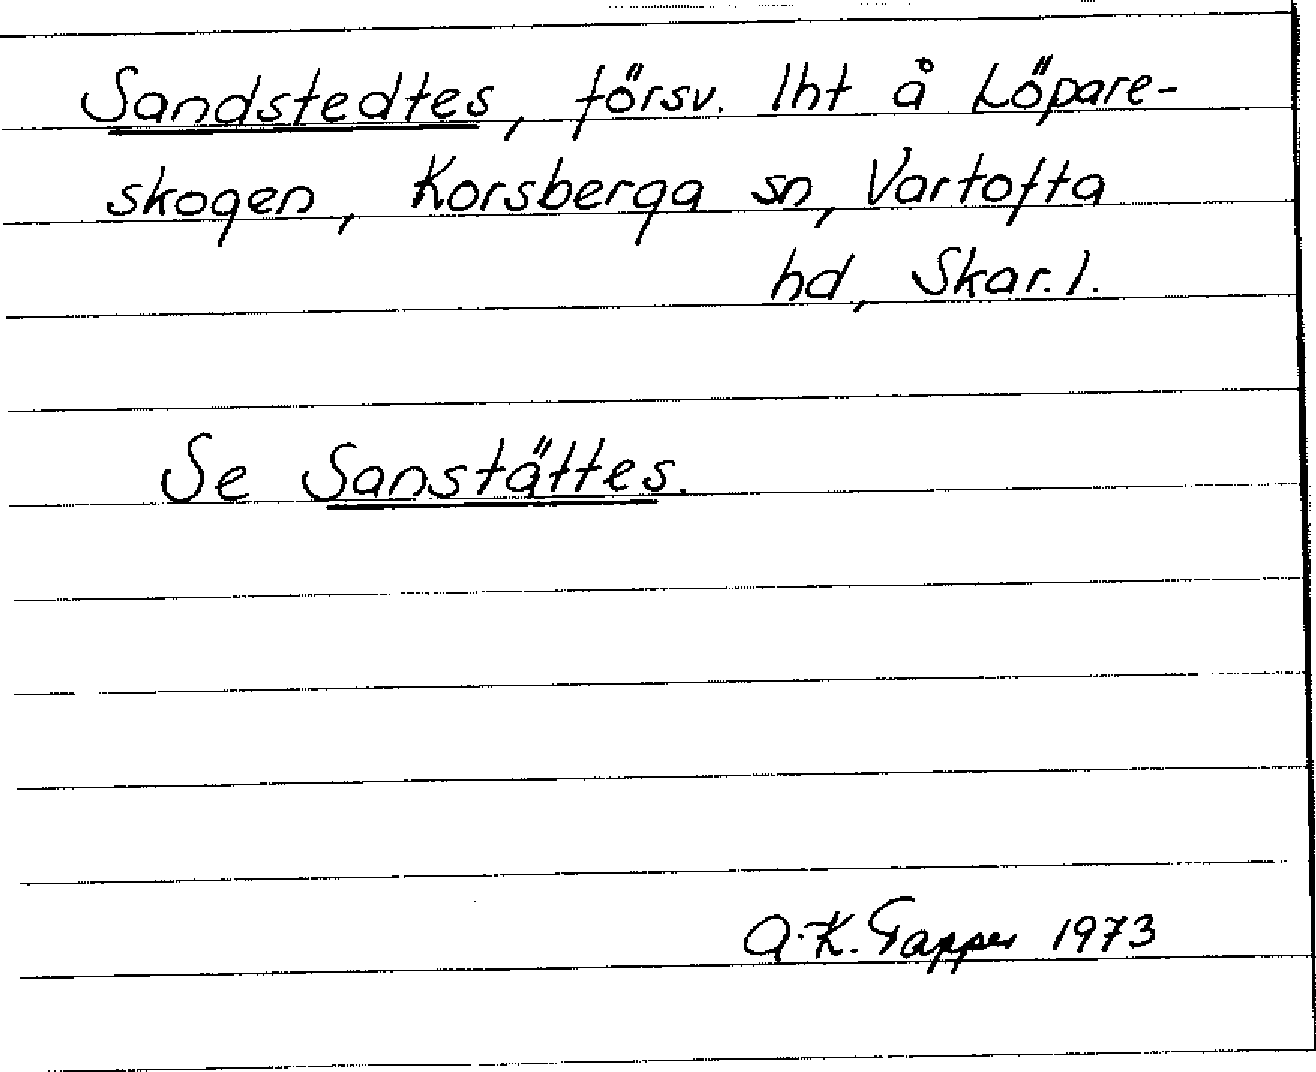 Sandstedtes, försv. lht å Löpare-
skogen, Korsberga sn, Vartofta
hd, Skar. l.
Se Sanstättes.
A-K. Tapper 1973